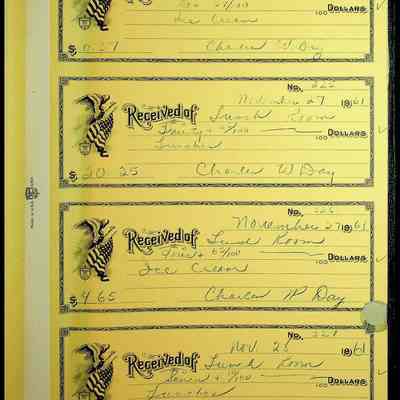 100 DOLLARS
Ice Cream
$ Charles W. Day
No. 225
November 27 1961
Received of Lunch Room
Twenty + 25/100
100 DOLLARS
Lunches
$20 25 Charles W Day
No. 226
November 27 1961
Received of Lunch Room
Four + 65/100
100 DOLLARS
Ice Cream
$4 65 Charles W Day
No. 227
Nov 28 1961
Received of Lunch Room
Seven +
100 DOLLARS
Lunches